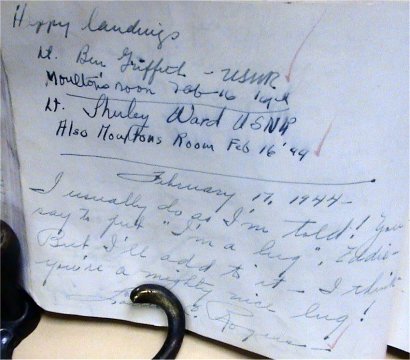 Happy landings
Lt. Ben Griffith - USNR
Moulton's room Feb 16 1944
Lt. Shirley Ward USNR
Also Moultons Room Feb 16 '44
February 17, 1944-
I usually do as I'm told! You
say to put "I'm a bug",
But I'll add to it - I think
you're a mighty nice bug!
Rogers